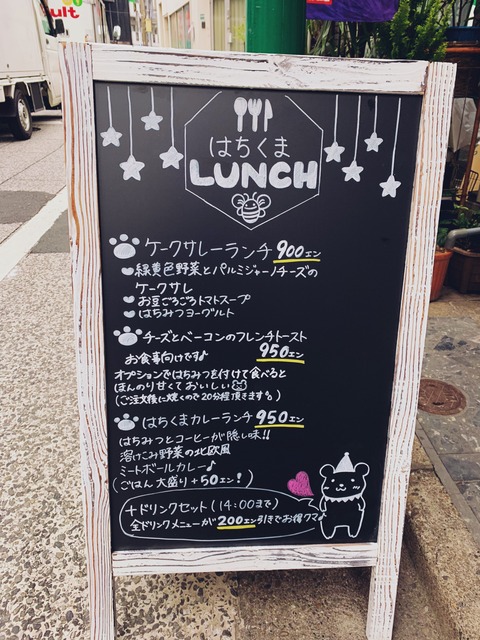 ult
はちくま
LUNCH
ケークサレーランチ 900エン
緑黄色野菜とパルミジャーノチーズの
ケークサレ
お豆ごろごろトマトスープ
はちみつヨーグルト
チーズとベーコンのフレンチトースト
お食事向けです♪ 950エン
オプションではちみつを付けて食べると
ほんのり甘くておいしい
(ご注文後に焼くので20分程頂きます。)
はちくまカレーランチ 950エン
はちみつとコーヒーが隠し味!!
溶けこみ野菜の北欧風
ミートボールカレー♪
(ごはん 大盛り+50エン!)
+ドリンクセット(14:00まで)
全ドリンクメニューが200エン引きでお得クマ♪